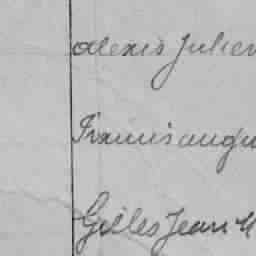 alexis Julien
Francis augu
Gilles Jean M